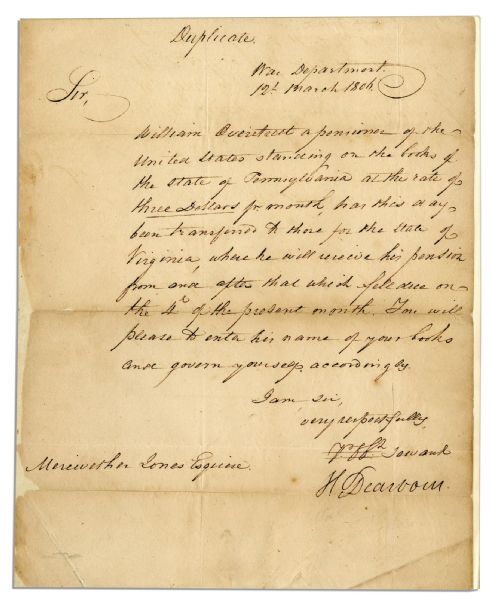 Duplicate.
War Department.
12th March 1806
Sir,
William Overstreet a pensioner of the
United States standing on the books of
the State of Pennsylvania at the rate of
three Dollars pr. month, has this day
been transferred to those for the State of
Virginia, where he will receive his pension
from and after that which fell due on
the 4th of the present month. You will
please to enter his name of your books
and govern yourself accordingly.
I am sir,
very respectfully
Servant
H Dearborn.
Meriwether Jones Esquire.